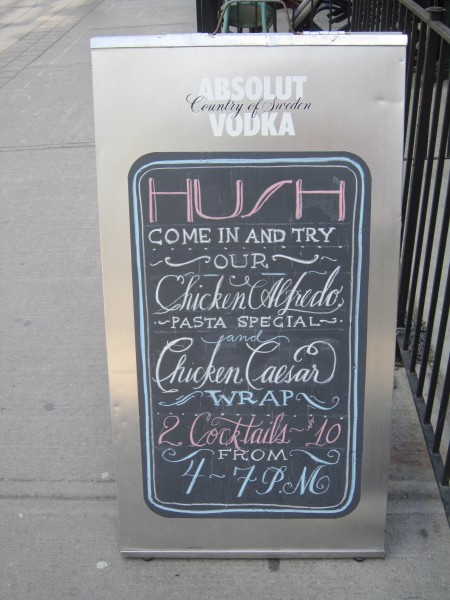 ABSOLUT
Country of Sweden
VODKA
HUSH
COME IN AND TRY
~OUR~
Chicken Alfredo,
~PASTA SPECIAL~
and
Chicken Caesar
~WRAP~
2 Cocktails~$10
FROM
4~7P.M